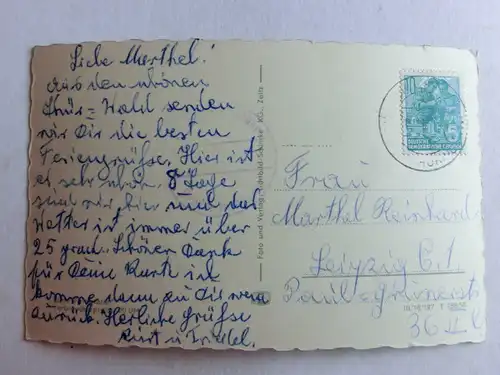 Liebe Marthel!
Aus dem schönen
Thür-Wald senden
wir Dir die besten
Feriengrüße. Hier ist
es sehr schön. 8 Tage
sind wir hier und das
Wetter ist immer über
25 grad. Schönen Dank
für Deine Karte ich
komme dann zu Dir wenn
zurück. Herliche Grüße
Kurt u.
Foto und Verlag KG, Zeitz
10
5
DEUTSCHE
DEMOKRATISCHE REPUBLIK
Frau
Marthel Reinhardt
Leipzig C.1.
36